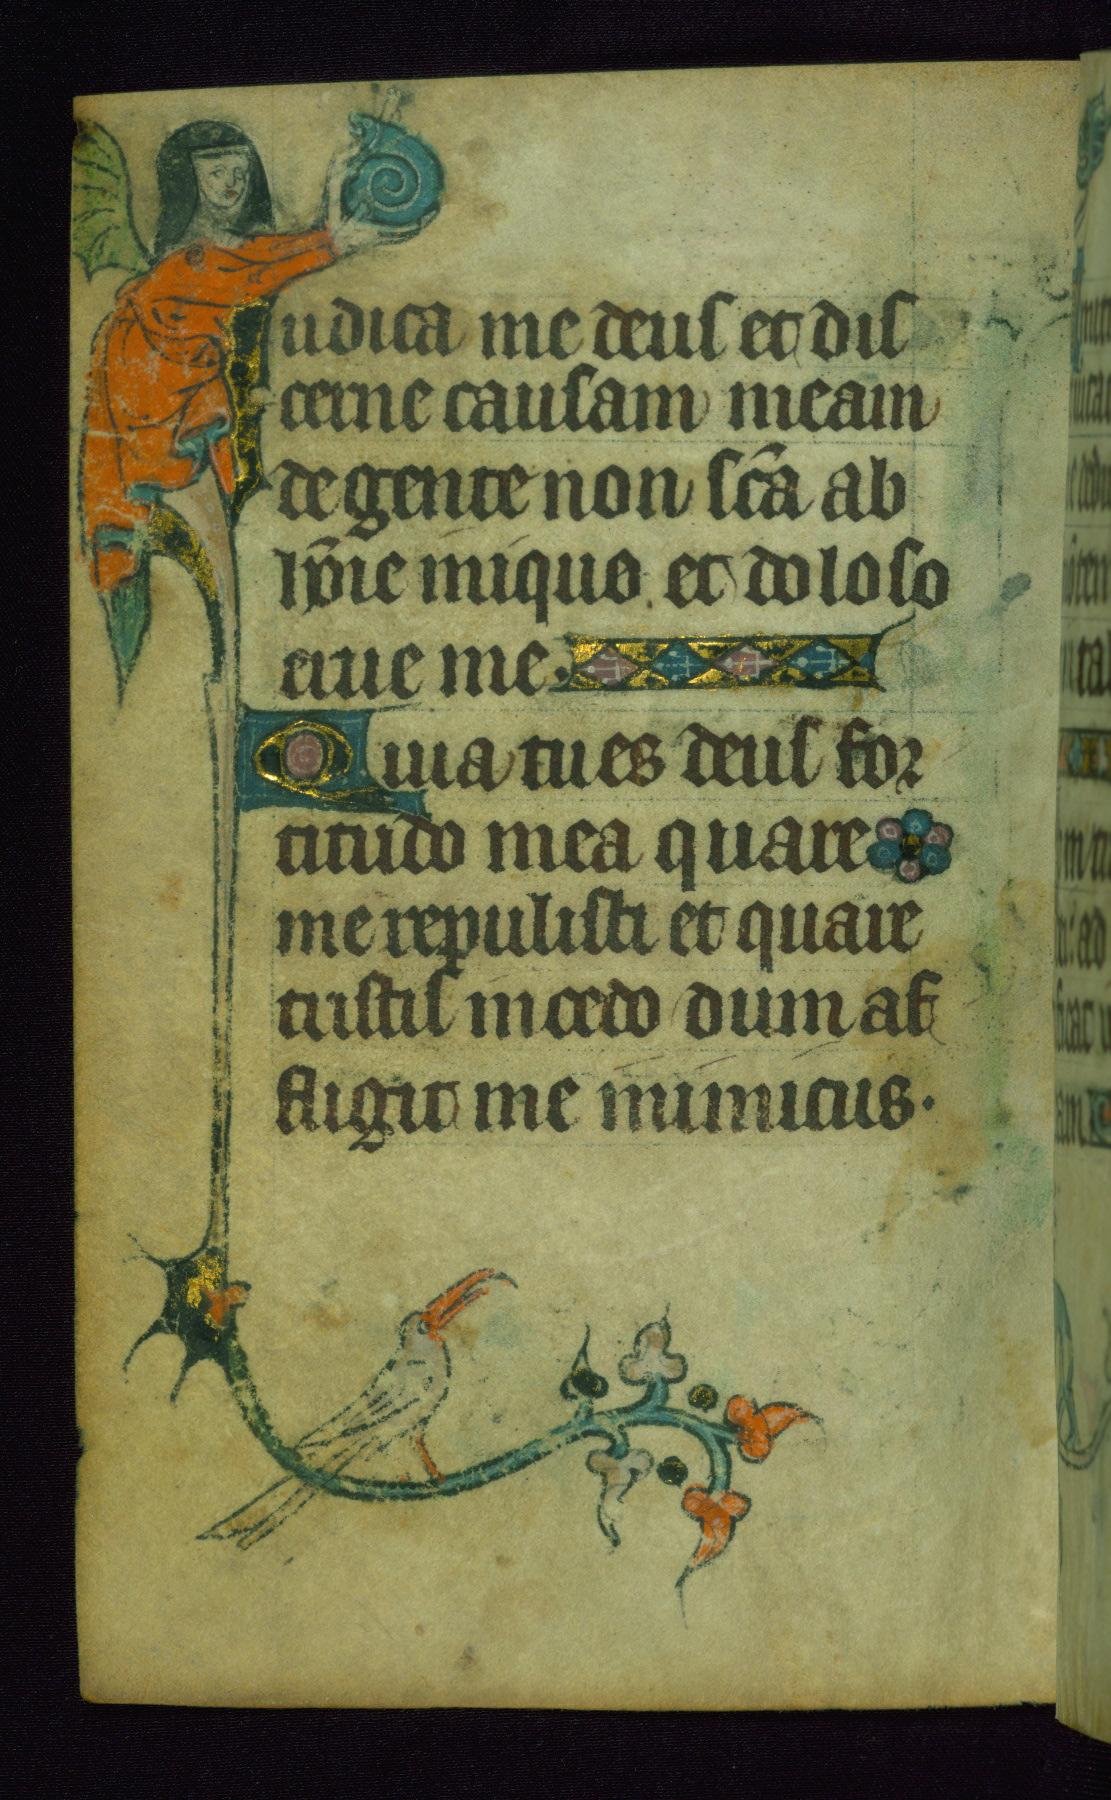 Iudica me deus et dis
cerne causam meam
de gente non sc̄a ab
hōīe iniquo et doloso
erue me.
Quia tu es deus for
titudo mea quare
me repulisti et quare
tristis incedo dum af
fligit me inimicus.